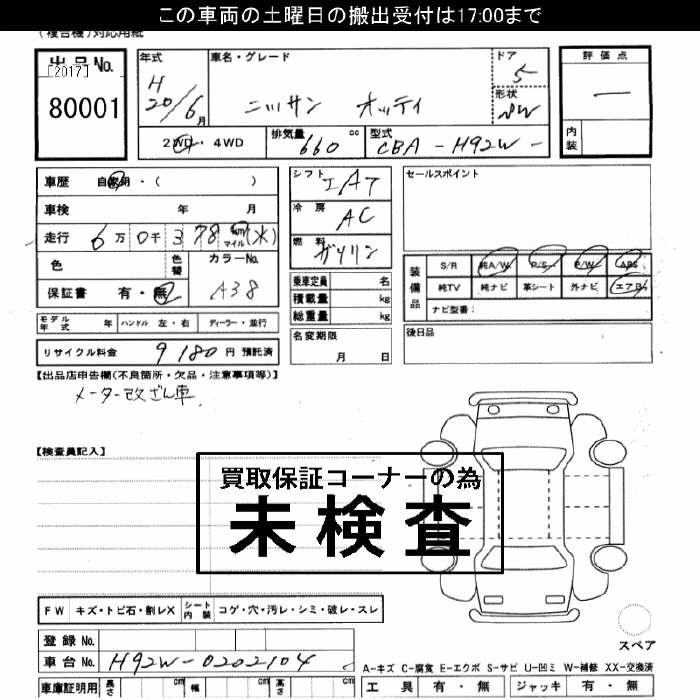 この車両の土曜日の搬出受付は17:00まで
(複合機)対応用紙
出品No.
[2017]
80001
年式
H
20/6月
車名・グレード
ニッサン オッティ
ドア
5
形状
評価点
—
内装
2WD・4WD
排気量 660 cc
型式 CBA-H92W-
車歴 自家用・( )
車検 年 月
走行 6万0千378 km マイル (*)
色
色替
カラーNo.
A38
保証書 有・無
モデル年式 年 ハンドル 左・右 ディーラー・並行
リサイクル料金 9180円 預託済
シフト IAT
冷房 AC
燃料 ガソリン
乗車定員 名
積載量 kg
総重量 kg
名変期限
月 日
セールスポイント
装備品
S/R 純A/W P/S P/W ABS
純TV 純ナビ 革シート 外ナビ エアB
ナビ型番:
後日品
【出品店申告欄(不良箇所・欠品・注意事項等)】
メーター改ざん車
【検査員記入】
買取保証コーナーの為
未検査
FW キズ・トビ石・割レX シート内装 コゲ・穴・汚レ・シミ・破レ・スレ
登録No.
車台No. H92W-0202104
車庫証明用 長さ cm 幅 cm 高さ cm
スペア
A-キズ C-腐食 E-エクボ S-サビ U-凹ミ W-補修 XX-交換済
工具 有・無 ジャッキ 有・無